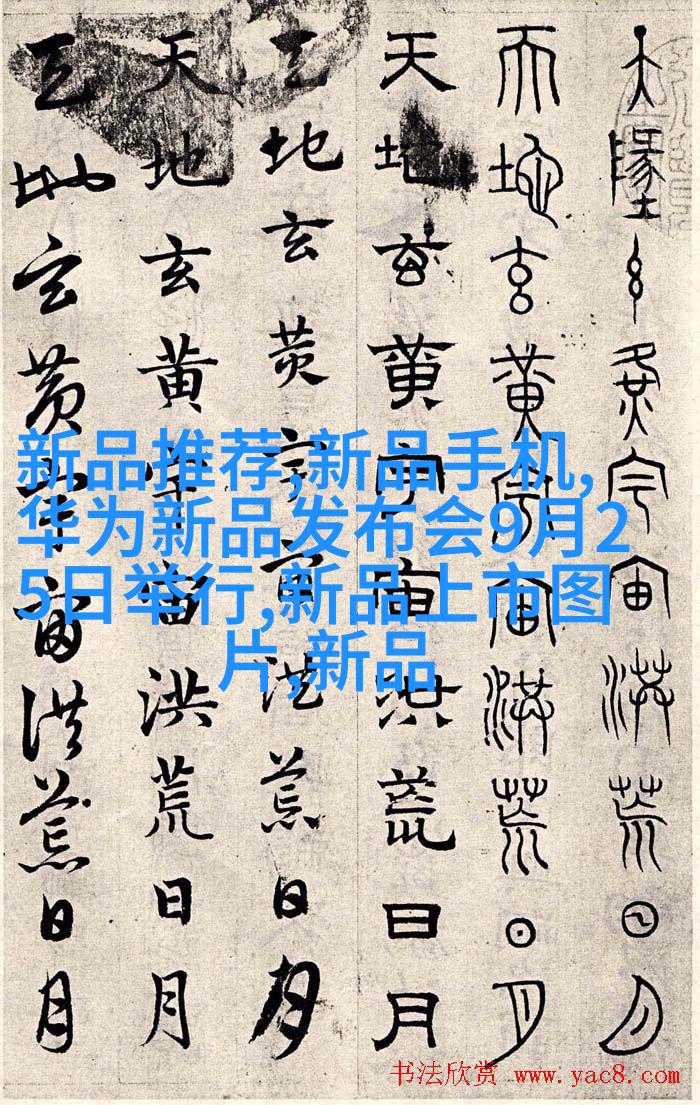 天墬玄黄宇宙洪荒日月
天地玄黄宇宙洪荒日月
天地玄黄宇宙洪荒日月
天地玄黄宇宙洪荒日月
天地玄黄宇宙洪荒日月
天地玄黄宇宙洪荒日月
新品推荐,新品手机,
华为新品发布会9月2
5日举行,新品上市图
片,新品
书法欣赏 www.yac8.com